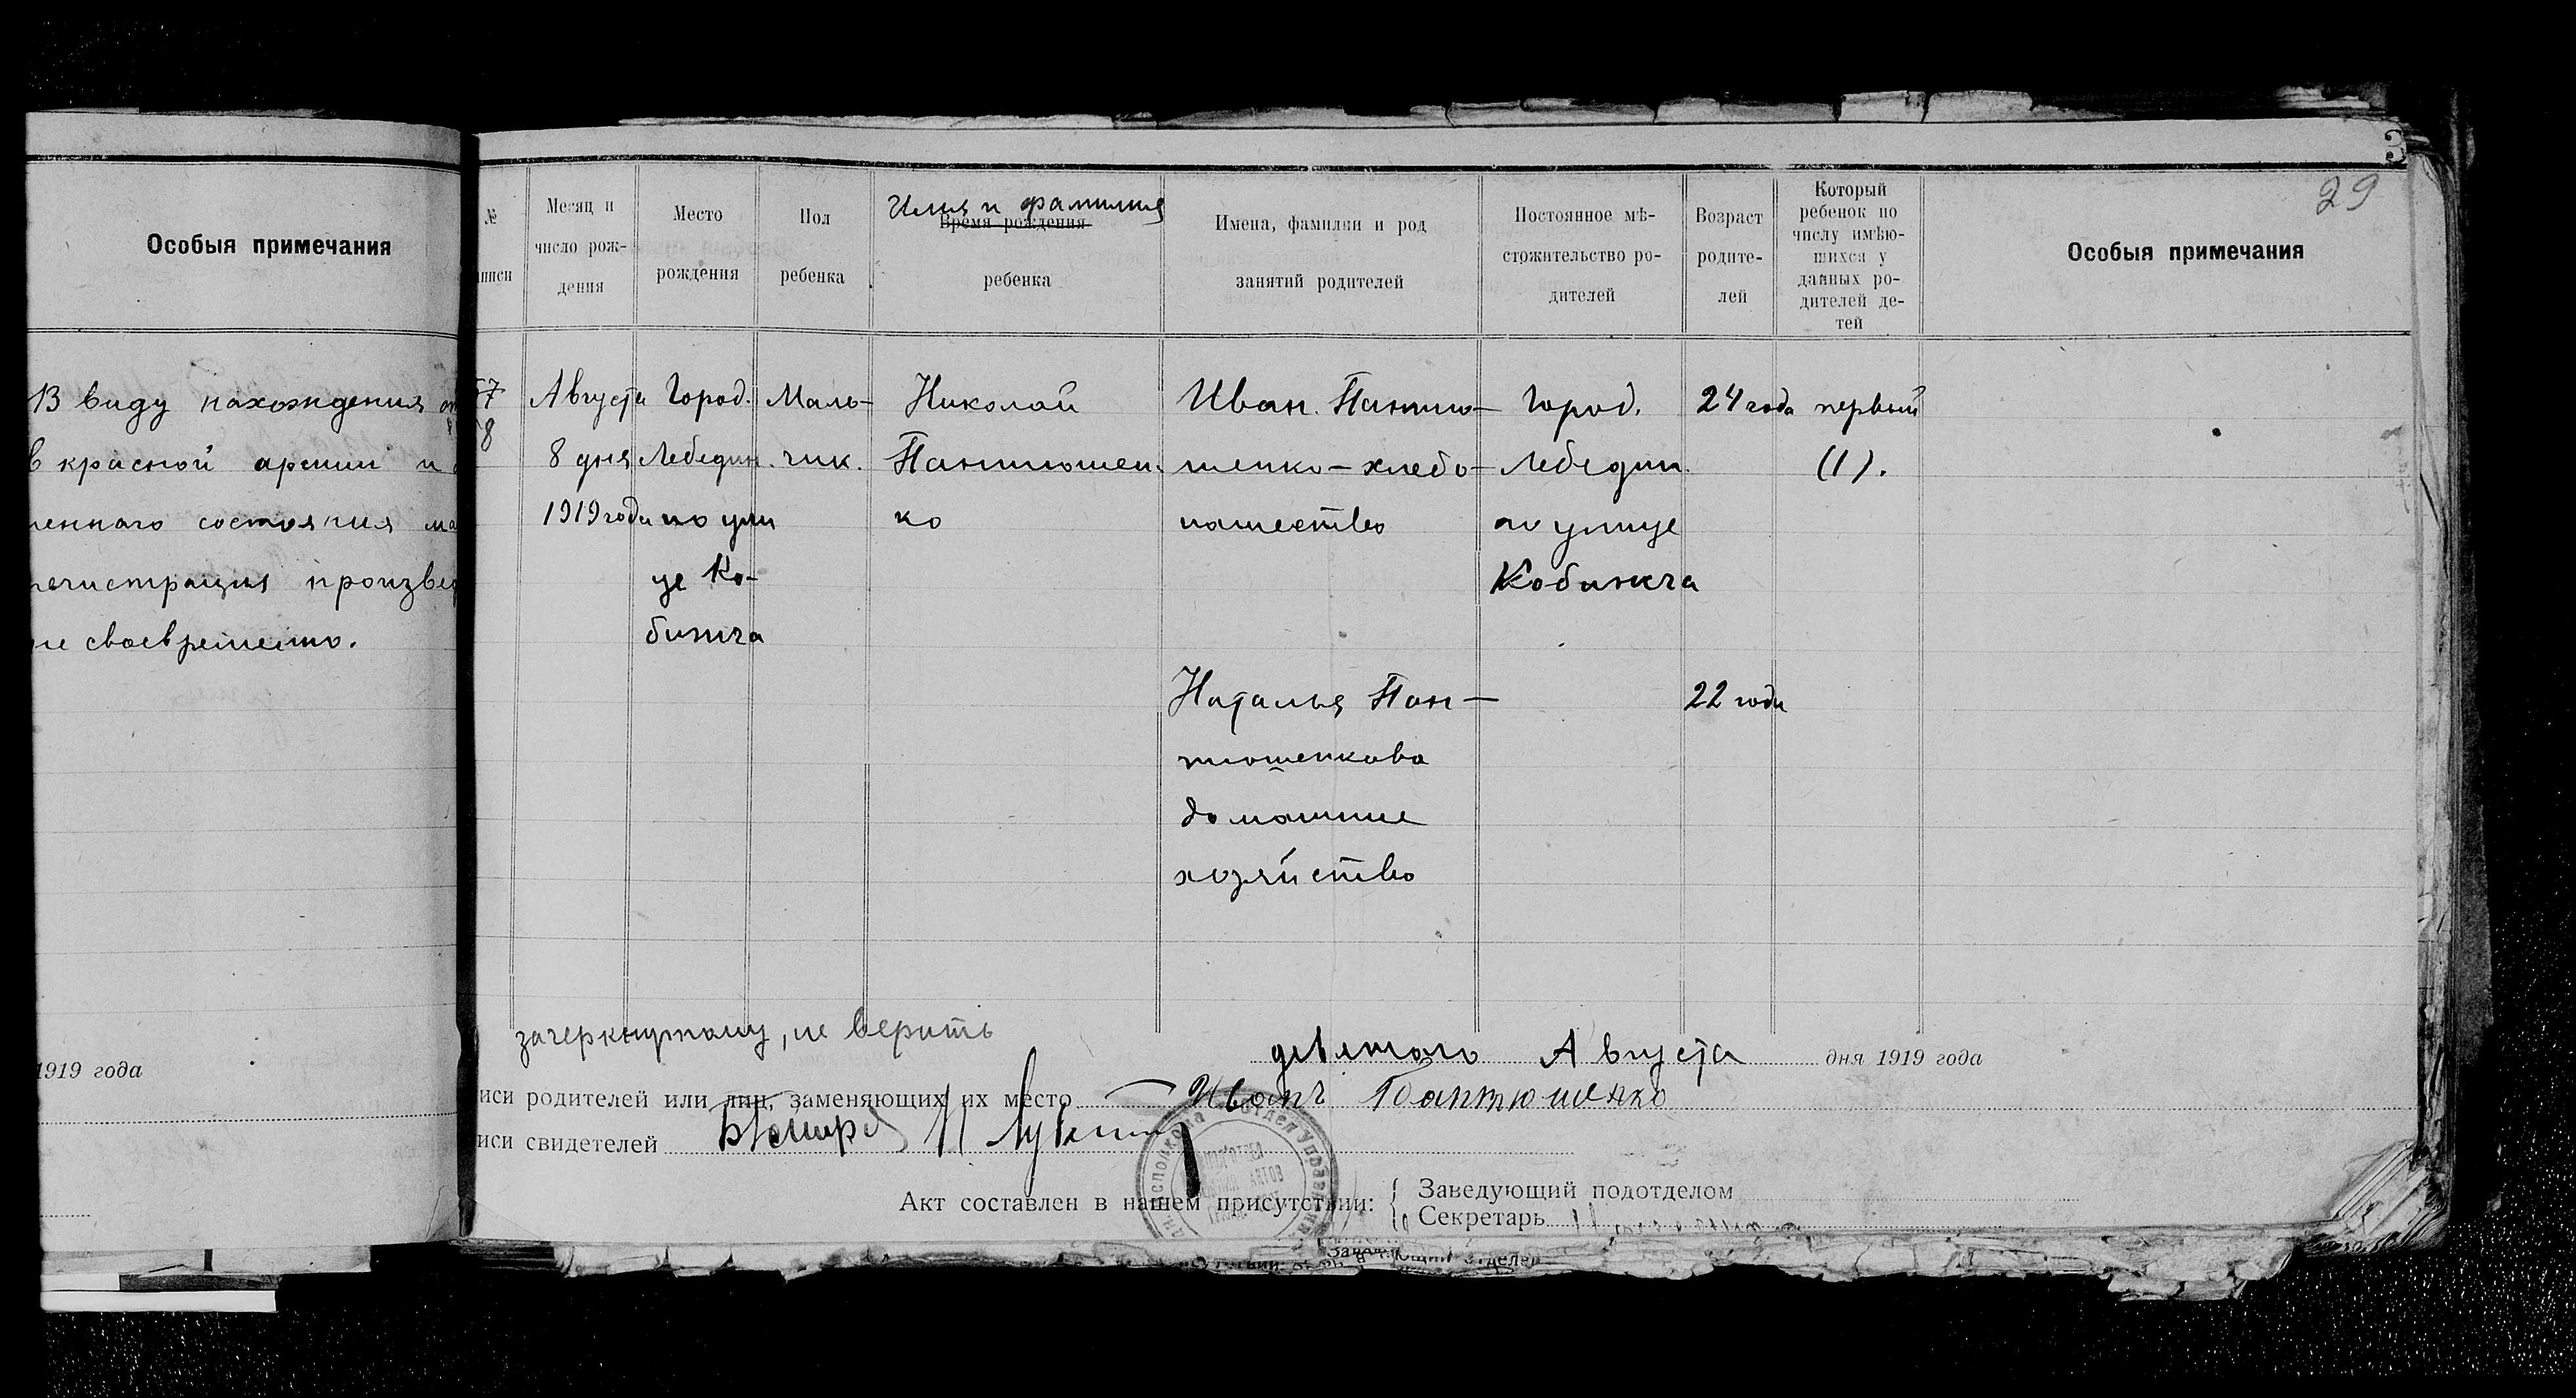 Особыя примечания
В виду нахождения
в красной армии и
леннаго состояния
регистрация произве
не своевременно.
1919 года
3
29
№
писи
Месяц и
число рож-
дения
Место
рождения
Пол
ребенка
Имя и фамилия
Время рождения
ребенка
Имена, фамилии и род
занятий родителей
Постоянное мѣ-
стожительство ро-
дителей
Возраст
родите-
лей
Который
ребенок по
числу имѣю-
щихся у
данных ро-
дителей де-
тей
Особыя примечания
57
58
Августа
8 дня
1919 года
Город.
Лебедин.
по ули
це Ко-
бижча
Маль-
чик.
Николай
Пантюшен.
ко
Иван. Пантю-
шенко - хлебо-
пашество
Город.
Лебедин.
по улице
Кобижча
24 года
первый
(1).
Наталья Пан-
тюшенкова
домашнее
хозяйство
22 года
зачеркнутому, не верить
девятого Августа дня 1919 года
иси родителей или лиц, заменяющих их место Иванъ Пантюшенко
иси свидетелей
Акт составлен в нашем присутствии:
Заведующий подотделом
Секретарь